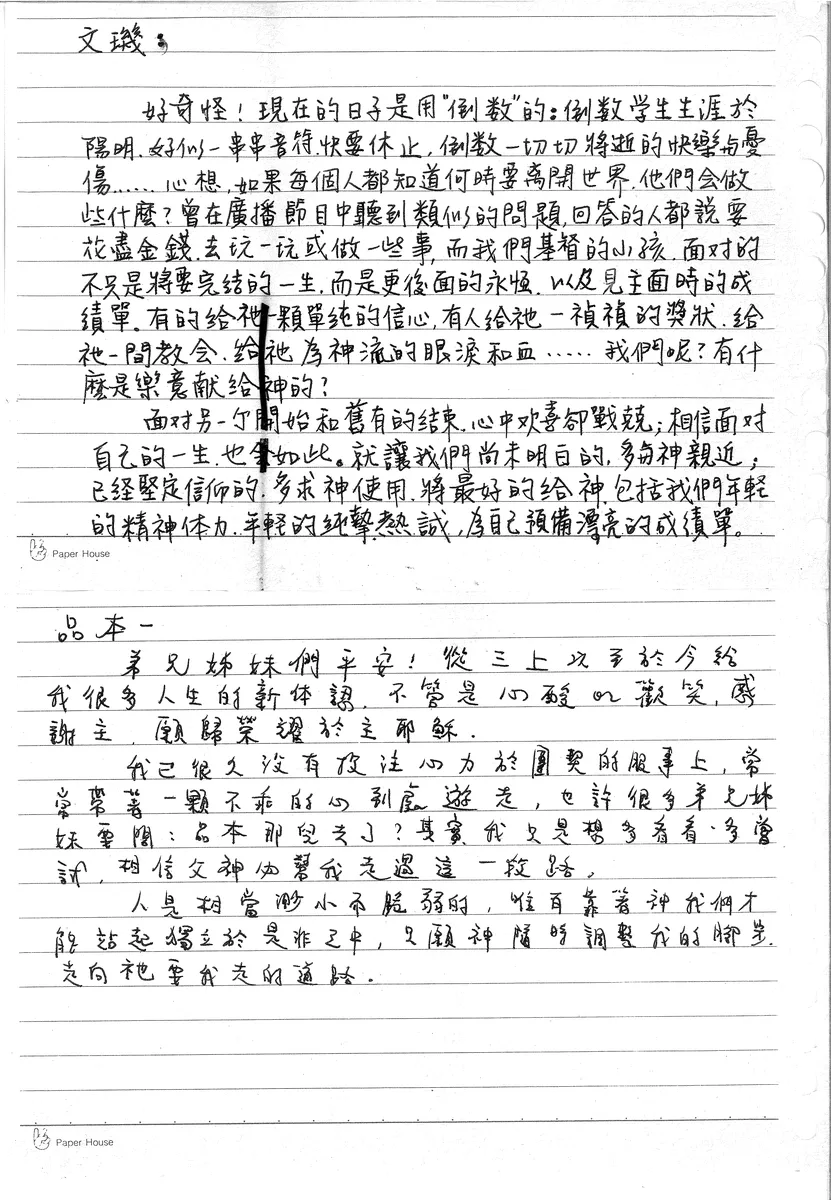 文璣：
好奇怪！現在的日子是用"倒数"的：倒数學生生涯於
陽明.好似一串串音符.快要休止,倒数一切切將逝的快樂与憂
傷……心想,如果每個人都知道何時要离開世界.他們會做
些什麼？曾在廣播節目中聽到類似的問題,回答的人都說要
花盡金錢.去玩一玩或做一些事,而我們基督的小孩.面对的
不只是將要完结的一生,而是更後面的永恆.以及見主面時的成
績單。有的給祂一顆單純的信心,有人給祂一禎禎的獎狀.給
祂一間教会.給祂為神流的眼淚和血……我們呢？有什
麼是樂意献給神的？
面对另一个開始和舊有的结束.心中欢喜卻戰兢；相信面对
自己的一生.也如此。就讓我們尚未明白的,多与神親近；
已经堅定信仰的.多求神使用.將最好的给神.包括我們年輕
的精神体力.年輕的純摯.熱誠,為自己預備漂亮的成績單。
Paper House
品本一
弟兄姊妹們平安！從三上次至於今給
我很多人生的新体認.不管是心酸or歡笑,感
謝主.願歸榮耀於主耶穌.
我已很久没有投注心力於團契的服事上,常
常帶著一顆不乖的心到處遊走,也許很多弟兄姊
妹要問：品本那兒去了？其實我只是想多看看.多嘗
試,相信父神必幫我走過這一段路。
人是相當渺小而脆弱的,唯有靠著神我們才
能站起獨立於是非之中,只願神隨時調整我的腳步.
走向祂要我走的道路.
Paper House